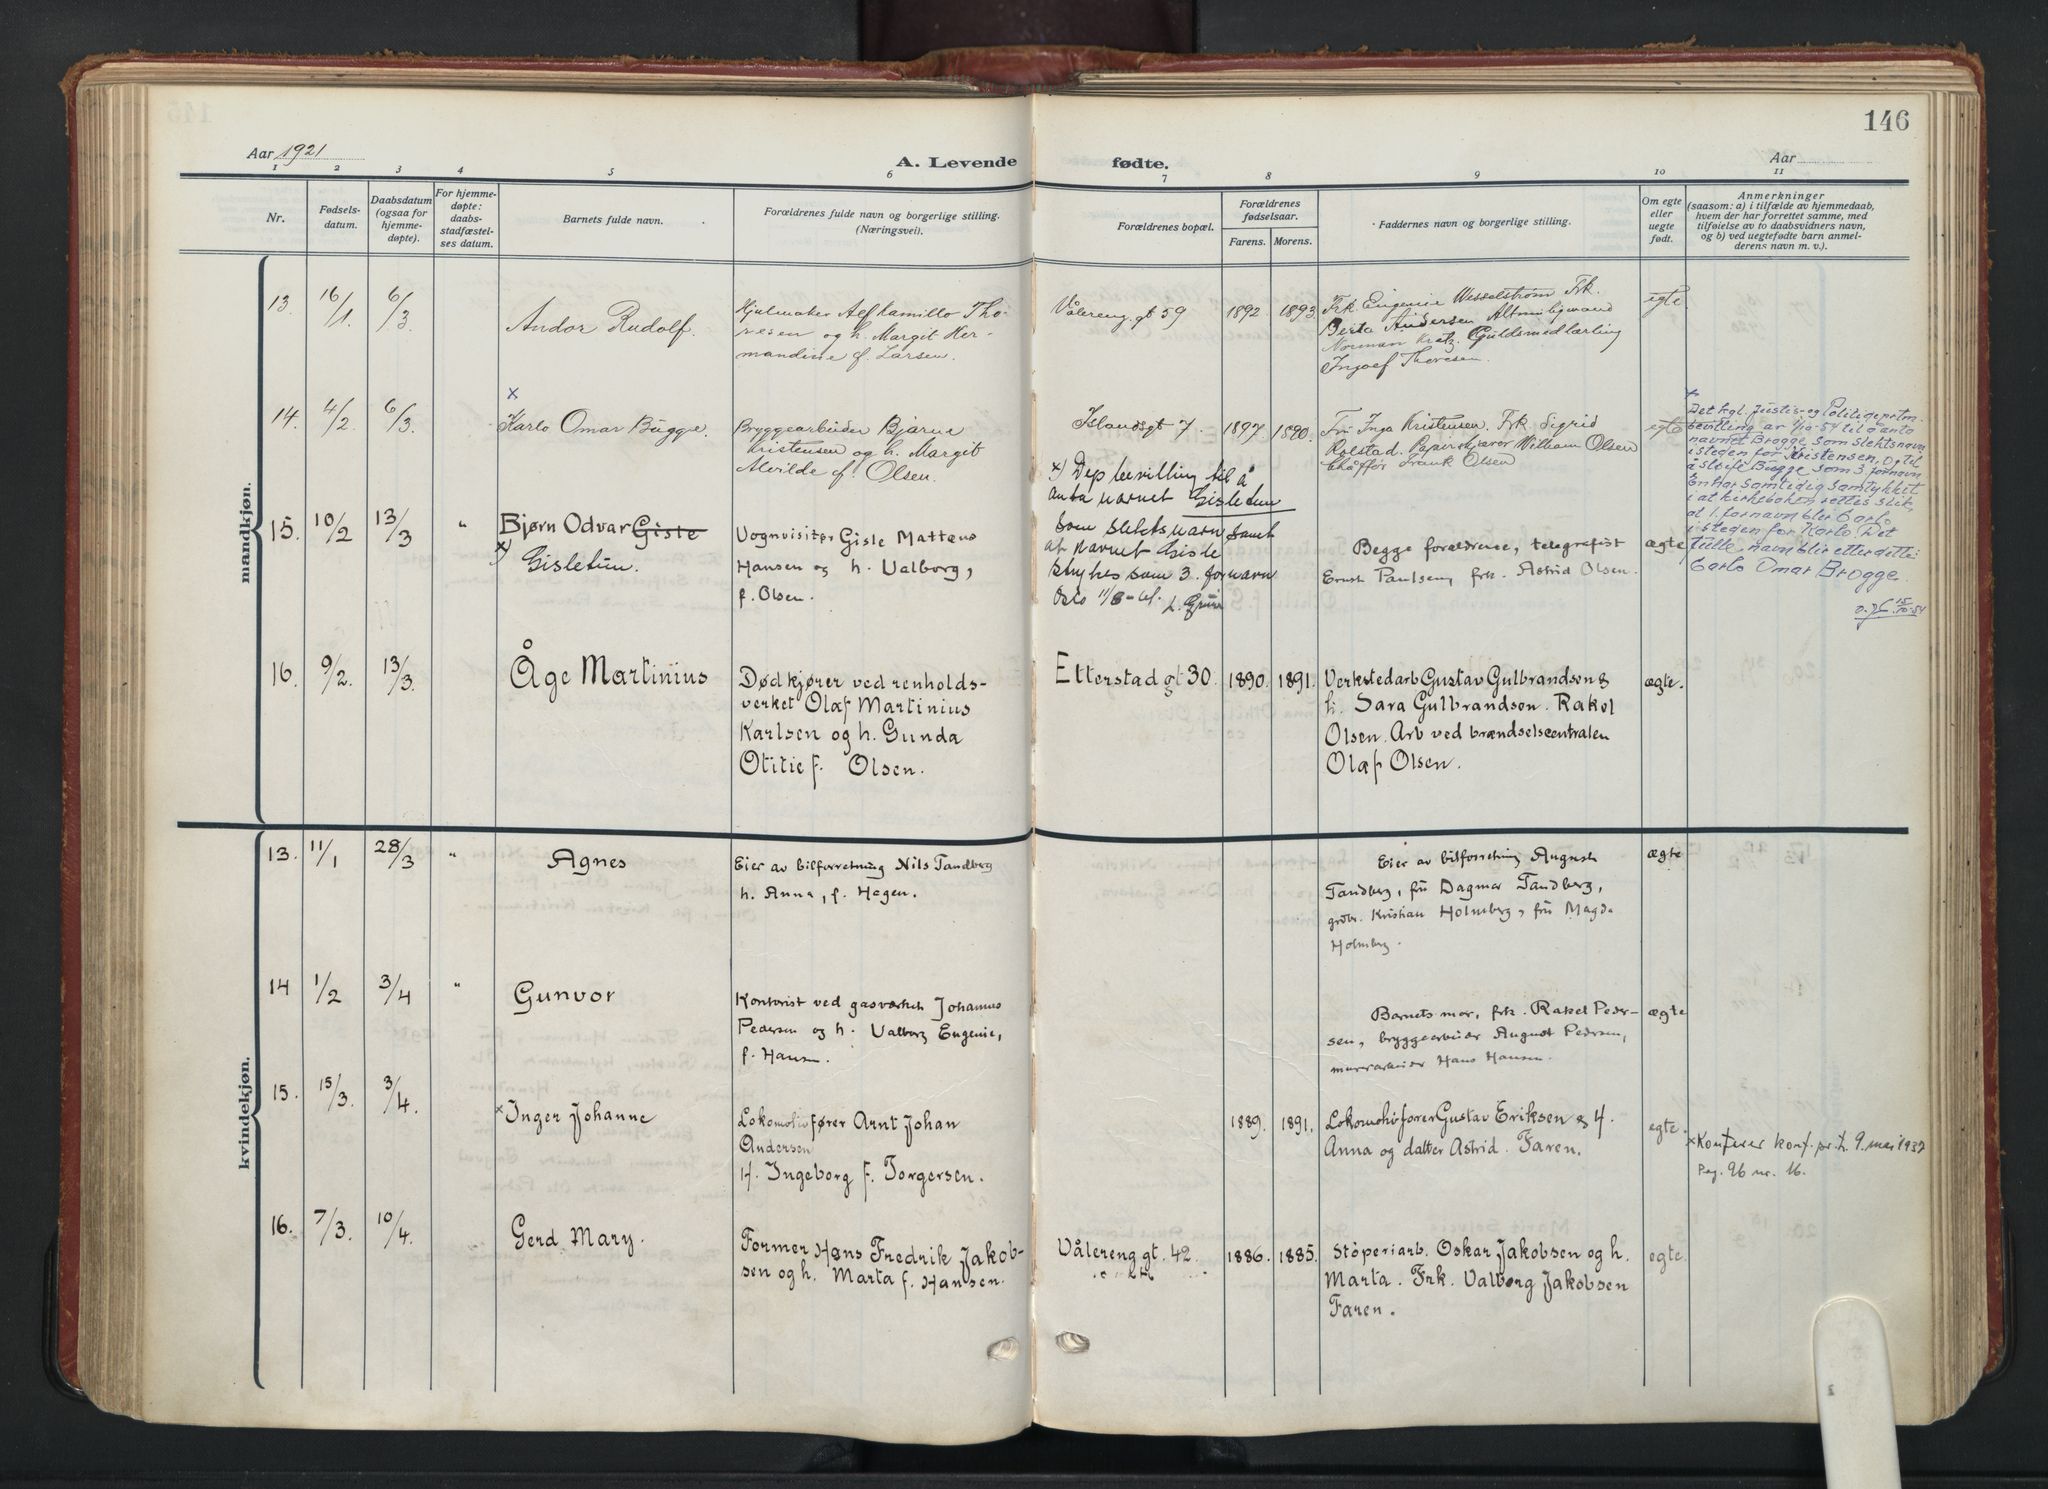 146
Aar 1921
A. Levende fødte.
Aar
1 2 3 4 5 6 7 8 9 10 11
Nr.
Fødsels-
datum.
Daabsdatum
(ogsaa for
hjemme-
døpte).
For hjemme-
døpte:
daabs-
stadfæstel-
ses datum.
Barnets fulde navn.
Forældrenes fulde navn og borgerlige stilling.
(Næringsvei).
Forældrenes bopæl.
Forældrenes
fødselsaar.
Farens. Morens.
Faddernes navn og borgerlige stilling.
Om egte
eller
uegte
født.
Anmerkninger
(saasom: a) i tilfælde av hjemmedaab,
hvem der har forrettet samme, med
tilføielse av to daabsvidners navn,
og b) ved uegtefødte barn anmel-
derens navn m. v.).
mandkjøn.
13. 16/1. 6/3
Andor Rudolf.
Hjulmaker Alf Kamillo Tho-
resen og h. Margit Her-
mandine f. Larsen.
Vålereng. gt 59
1892. 1893.
Frk. Eugenie Wesselstrøm Frk.
Berta Andersen
Norman Kratz. Guldsmedlærling
Ingolf Thoresen.
egte.
14. 4/2. 6/3.
x
Karlo Omar Bugge.
Bryggearbeider Bjarne
Kristensen og h. Margit
Alvilde f. Olsen.
Islandsgt 7.
1897. 1890.
Fru Inga Kristensen. Frk. Sigrid
Rolstad. William Olsen
Chåffør Frank Olsen
egte
x
Det kgl. Justis- og Politideprtm.
bevilling av 4/10-54 til å anta
navnet Brogge, som slektsnavn
isteden for Kristensen, og til
å sløife Bugge som 3. fornavn
En har samtidig samtykket
i at kirkeboken rettes slik,
at 1. fornavn blir Carlo
isteden for Karlo. Det
fulle navn blir etter dette:
Carlo Omar Brogge.
15/10-54
15. 10/2 13/3 "
Bjørn Odvar Gisle
x) Gisletun.
Vognvisitør Gisle Mattens
Hansen og h. Valborg,
f. Olsen.
x) Dep bevilling til å
anta navnet Gisletun
som slektsnavn samt
at navnet Gisle
strykes som 3. fornavn
Oslo 11/8-41.
Begge forældrene, telegrafist
Ernst Paulsen, frk. Astrid Olsen.
ægte
16. 9/2. 13/3.
Åge Martinius
Dødkjører ved renholds-
verket Olaf Martinius
Karlsen og h. Gunda
Otitie f. Olsen.
Etterstad gt 30.
1890. 1891.
Verkstedarb Gustav Gulbrandsen &
h. Sara Gulbrandsen. Rakel
Olsen. Arb ved brændselscentralen
Olaf Olsen.
ægte.
kvindekjøn.
13. 11/1 28/3 "
Agnes
Eier av bilforretning Nils Tandberg
h. Anna, f. Hagen.
Eier av bilforretning August
Tandberg, fru Dagmar Tandberg,
grdbr. Kristian Holmberg, fru Magda
Holmberg.
ægte
14 1/2 3/4 "
Gunvor
Kontorist ved gasværket Johannes
Pedersen og h. Valborg Eugenie,
f. Hansen.
Barnets mor, frk. Rakel Peder-
sen, bryggearbeider August Pedersen,
murerarbeider Hans Hansen.
ægte
15. 15/3. 3/4.
x Inger Johanne
Lokomotivfører Arnt Johan
Andersen
H. Ingeborg f. Torgersen.
1889. 1891.
Lokomotivfører Gustav Eriksen & H.
Anna og datter Astrid. Faren.
egte.
x Konferer konf. pr. t. 9. mai 1937
Pag. 96 nr. 16.
16. 7/3. 10/4.
Gerd Mary.
Former Hans Fredrik Jakob-
sen og h. Marta f. Hansen.
Vålereng gt. 42.
1886. 1885.
Støperiarb. Oskar Jakobsen og h.
Marta. Frk. Valborg Jakobsen
Faren.
egte.